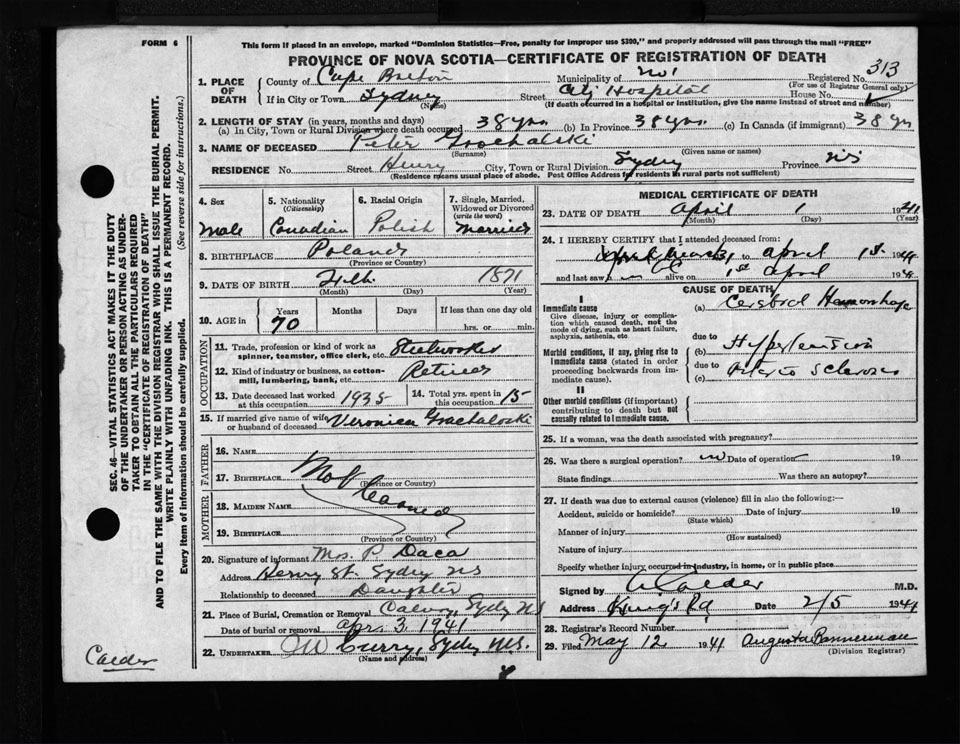 FORM 6
This form if placed in an envelope, marked "Dominion Statistics—Free, penalty for improper use $300," and properly addressed will pass through the mail "FREE"
PROVINCE OF NOVA SCOTIA—CERTIFICATE OF REGISTRATION OF DEATH
Registered No. 313
(For use of Registrar General only)
1. PLACE OF DEATH County of Cape Breton Municipality of No 1
If in City or Town Sydney Street City Hospital House No.
(Name) (If death occurred in a hospital or institution, give the name instead of street and number)
2. LENGTH OF STAY (in years, months and days)
(a) In City, Town or Rural Division where death occurred 38 yrs. (b) In Province 38 yrs. (c) In Canada (if immigrant) 38 yrs
3. NAME OF DECEASED Peter Grochalski
(Surname) (Given name or names)
RESIDENCE No. Street Henry City, Town or Rural Division Sydney Province NS
(Residence means usual place of abode. Post Office Address for residents in rural parts not sufficient)
4. Sex Male
5. Nationality (Citizenship) Canadian
6. Racial Origin Polish
7. Single, Married, Widowed or Divorced (write the word) Married
8. BIRTHPLACE Poland
(Province or Country)
9. DATE OF BIRTH Feb. 1871
(Month) (Day) (Year)
10. AGE in Years 70 Months Days If less than one day old
hrs. or min.
OCCUPATION
11. Trade, profession or kind of work as spinner, teamster, office clerk, etc. Steelworker
12. Kind of industry or business, as cotton-mill, lumbering, bank, etc. Retired
13. Date deceased last worked at this occupation 1935
14. Total yrs. spent in this occupation 15
15. If married give name of wife or husband of deceased Veronica Grachaloski
FATHER
16. NAME
17. BIRTHPLACE Not
(Province or Country)
MOTHER
18. MAIDEN NAME
19. BIRTHPLACE
(Province or Country)
20. Signature of informant Mrs. P. Daca
Address Henry St. Sydney NS
Relationship to deceased Daughter
21. Place of Burial, Cremation or Removal Calvary, Sydney NS
Date of burial or removal Apr. 3, 1941
22. UNDERTAKER Curry, Sydney N.S.
(Name and address)
MEDICAL CERTIFICATE OF DEATH
23. DATE OF DEATH April 1 1941
(Month) (Day) (Year)
24. I HEREBY CERTIFY that I attended deceased from:
to April 1st 194
and last saw alive on 1st April 194
CAUSE OF DEATH
I
Immediate cause
Give disease, injury or complication which caused death, not the mode of dying, such as heart failure, asphyxia, asthenia, etc
(a) Cerebral Hemorrhage
due to
Morbid conditions, if any, giving rise to immediate cause (stated in order proceeding backwards from immediate cause).
(b) Hypertension
due to
(c) Arterio Sclerosis
II
Other morbid conditions (if important) contributing to death but not causally related to immediate cause.
25. If a woman, was the death associated with pregnancy?
26. Was there a surgical operation? no Date of operation 19
State findings Was there an autopsy?
27. If death was due to external causes (violence) fill in also the following:—
Accident, suicide or homicide? Date of injury 19
(State which)
Manner of injury
(How sustained)
Nature of injury
Specify whether injury occurred in industry, in home, or in public place
Signed by Calder M.D.
Address King's Rd Date 2/5 194
28. Registrar's Record Number
29. Filed May 12 1941 Augusta Bannerman
(Division Registrar)
SEC. 46—VITAL STATISTICS ACT MAKES IT THE DUTY
OF THE UNDERTAKER OR PERSON ACTING AS UNDER-
TAKER TO OBTAIN ALL THE PARTICULARS REQUIRED
IN THE "CERTIFICATE OF REGISTRATION OF DEATH"
AND TO FILE THE SAME WITH THE DIVISION REGISTRAR WHO SHALL ISSUE THE BURIAL PERMIT.
WRITE PLAINLY WITH UNFADING INK. THIS IS A PERMANENT RECORD.
Every item of information should be carefully supplied. (See reverse side for instructions.)
Calder